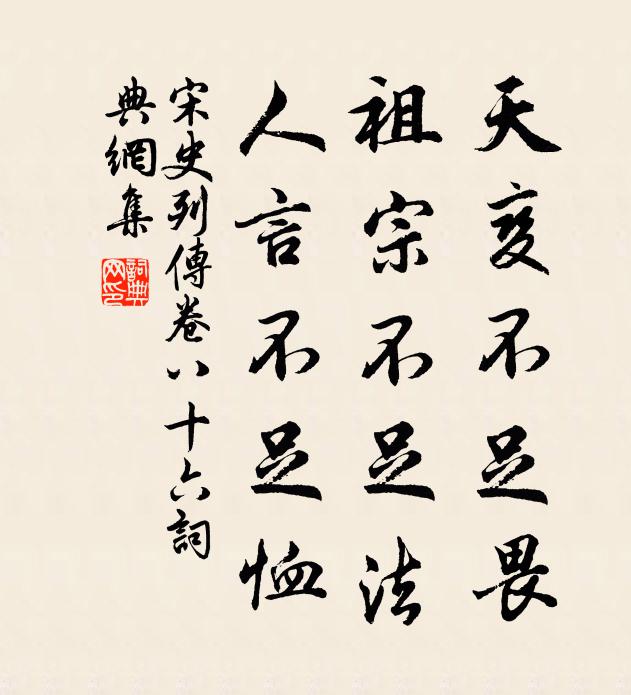 天变不足畏
祖宗不足法
人言不足恤
宋史列傳卷八十六詞
典網集
詞典网印